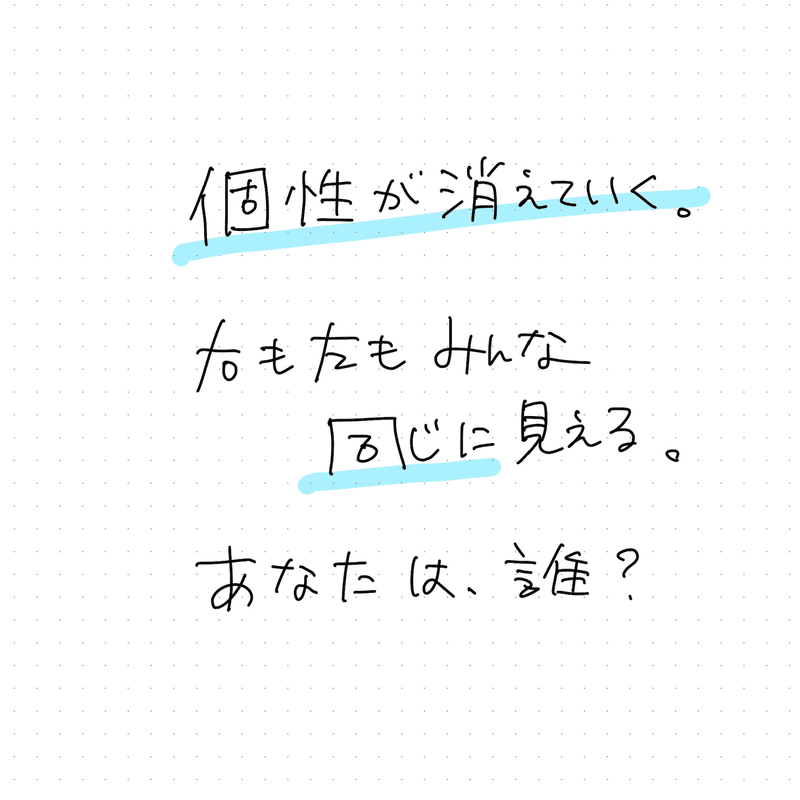 個性が消えていく。
右も左もみんな
同じに見える。
あなたは、誰?